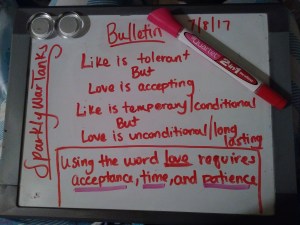 Bulletin
7/8/17
SparklyWarTanks
Like is tolerant
But
Love is accepting
Like is temperary/conditional
But
Love is unconditional/long
lasting
Using the word love requires
acceptance, time, and patience